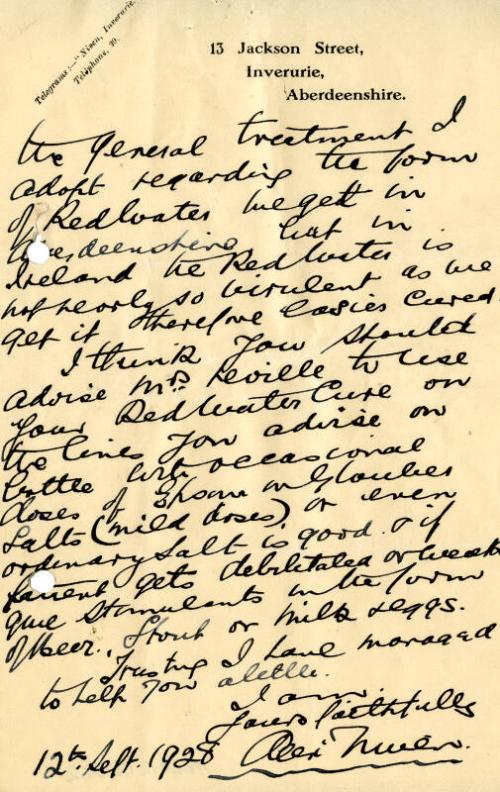 Telegrams :— Niven, Inverurie.
Telephone, 39.
13 Jackson Street,
Inverurie,
Aberdeenshire.
the general treatment I
adopt regarding the form
of Redwater we get in
Aberdeenshire but in
Ireland the Redwater is
not nearly so virulent as we
get it therefore easier cured
I think you should
advise Mrs Reville to use
your Redwater Cure on
the lines you advise on
bottle with occasional
doses of Epsom or Glauber
Salts (mild doses) or even
ordinary Salt is good. & if
patient gets debilitated or weak
give Stimulants in the form
of Beer, Stout or Milk & eggs.
Trusting I have managed
to help you a little.
I am.
Yours faithfully
12th Sept. 1928